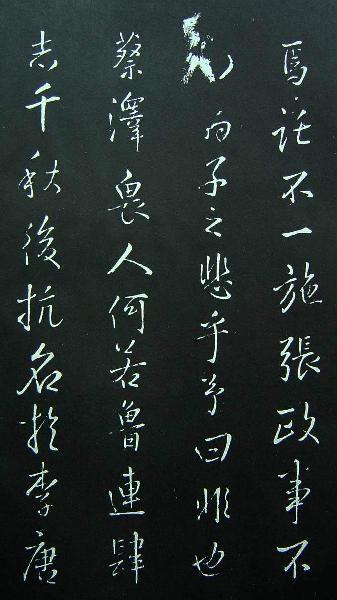 焉託不一施張政事不
子之悲乎予曰非也
蔡澤衆人何若魯連肆
志千秋後抗名於李唐